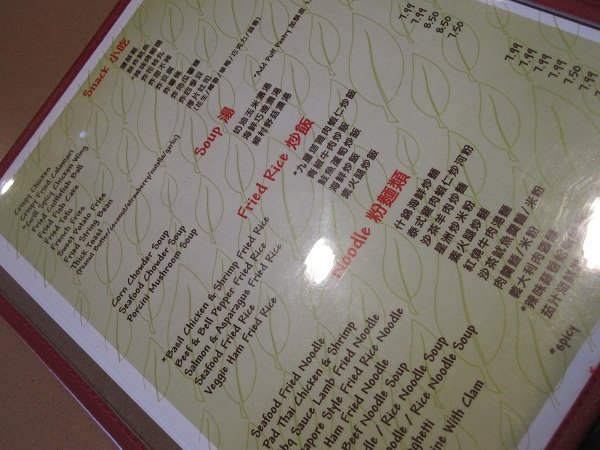 Snack 小吃
Crispy Chicken
Crispy Fried Calamari
*Grill Spicy Chicken Wing
Fried Cuttlefish Ball
Fried Fish Cake
Fried Tofu
French Fries
Sweet Potato Fries
Fried String Bean
Thick Toast
(Peanut Butter/coconut/strawberry/nutella/garlic)
Soup 湯
Corn Chowder Soup 奶油玉米濃湯
Seafood Chowder Soup 海鮮巧達濃湯
Porcini Mushroom Soup 鄉村野菇濃湯
*Add Puff Pastry
Fried Rice 炒飯
*Basil Chicken & Shrimp Fried Rice *九層塔雞肉蝦仁炒飯
Beef & Bell Pepper Fried Rice 青椒牛肉炒飯
Salmon & Asparagus Fried Rice 鮭魚蘆筍炒飯
Seafood Fried Rice 海鮮炒飯
Veggie Ham Fried Rice 素火腿炒飯
Noodle 粉麵類
Seafood Fried Noodle 什錦海鮮炒麵
Pad Thai Chicken & Shrimp 泰式雞肉蝦仁炒河粉
bq Sauce Lamb Fried Noodle 沙茶羊肉炒麵
apore Style Fried Rice Noodle 星洲炒米粉
Ham Fried Noodle 素火腿炒麵
Beef Noodle Soup 紅燒牛肉湯麵
odle / Rice Noodle Soup 沙茶魷魚羹麵/米粉
odle / Rice Noodle Soup 肉羹麵/米粉
ghetti 義大利肉醬麵
ine With Clam
*spicy
7.99
7.99
8.50
8.50
7.99
7.99
7.99
7.99
7.50